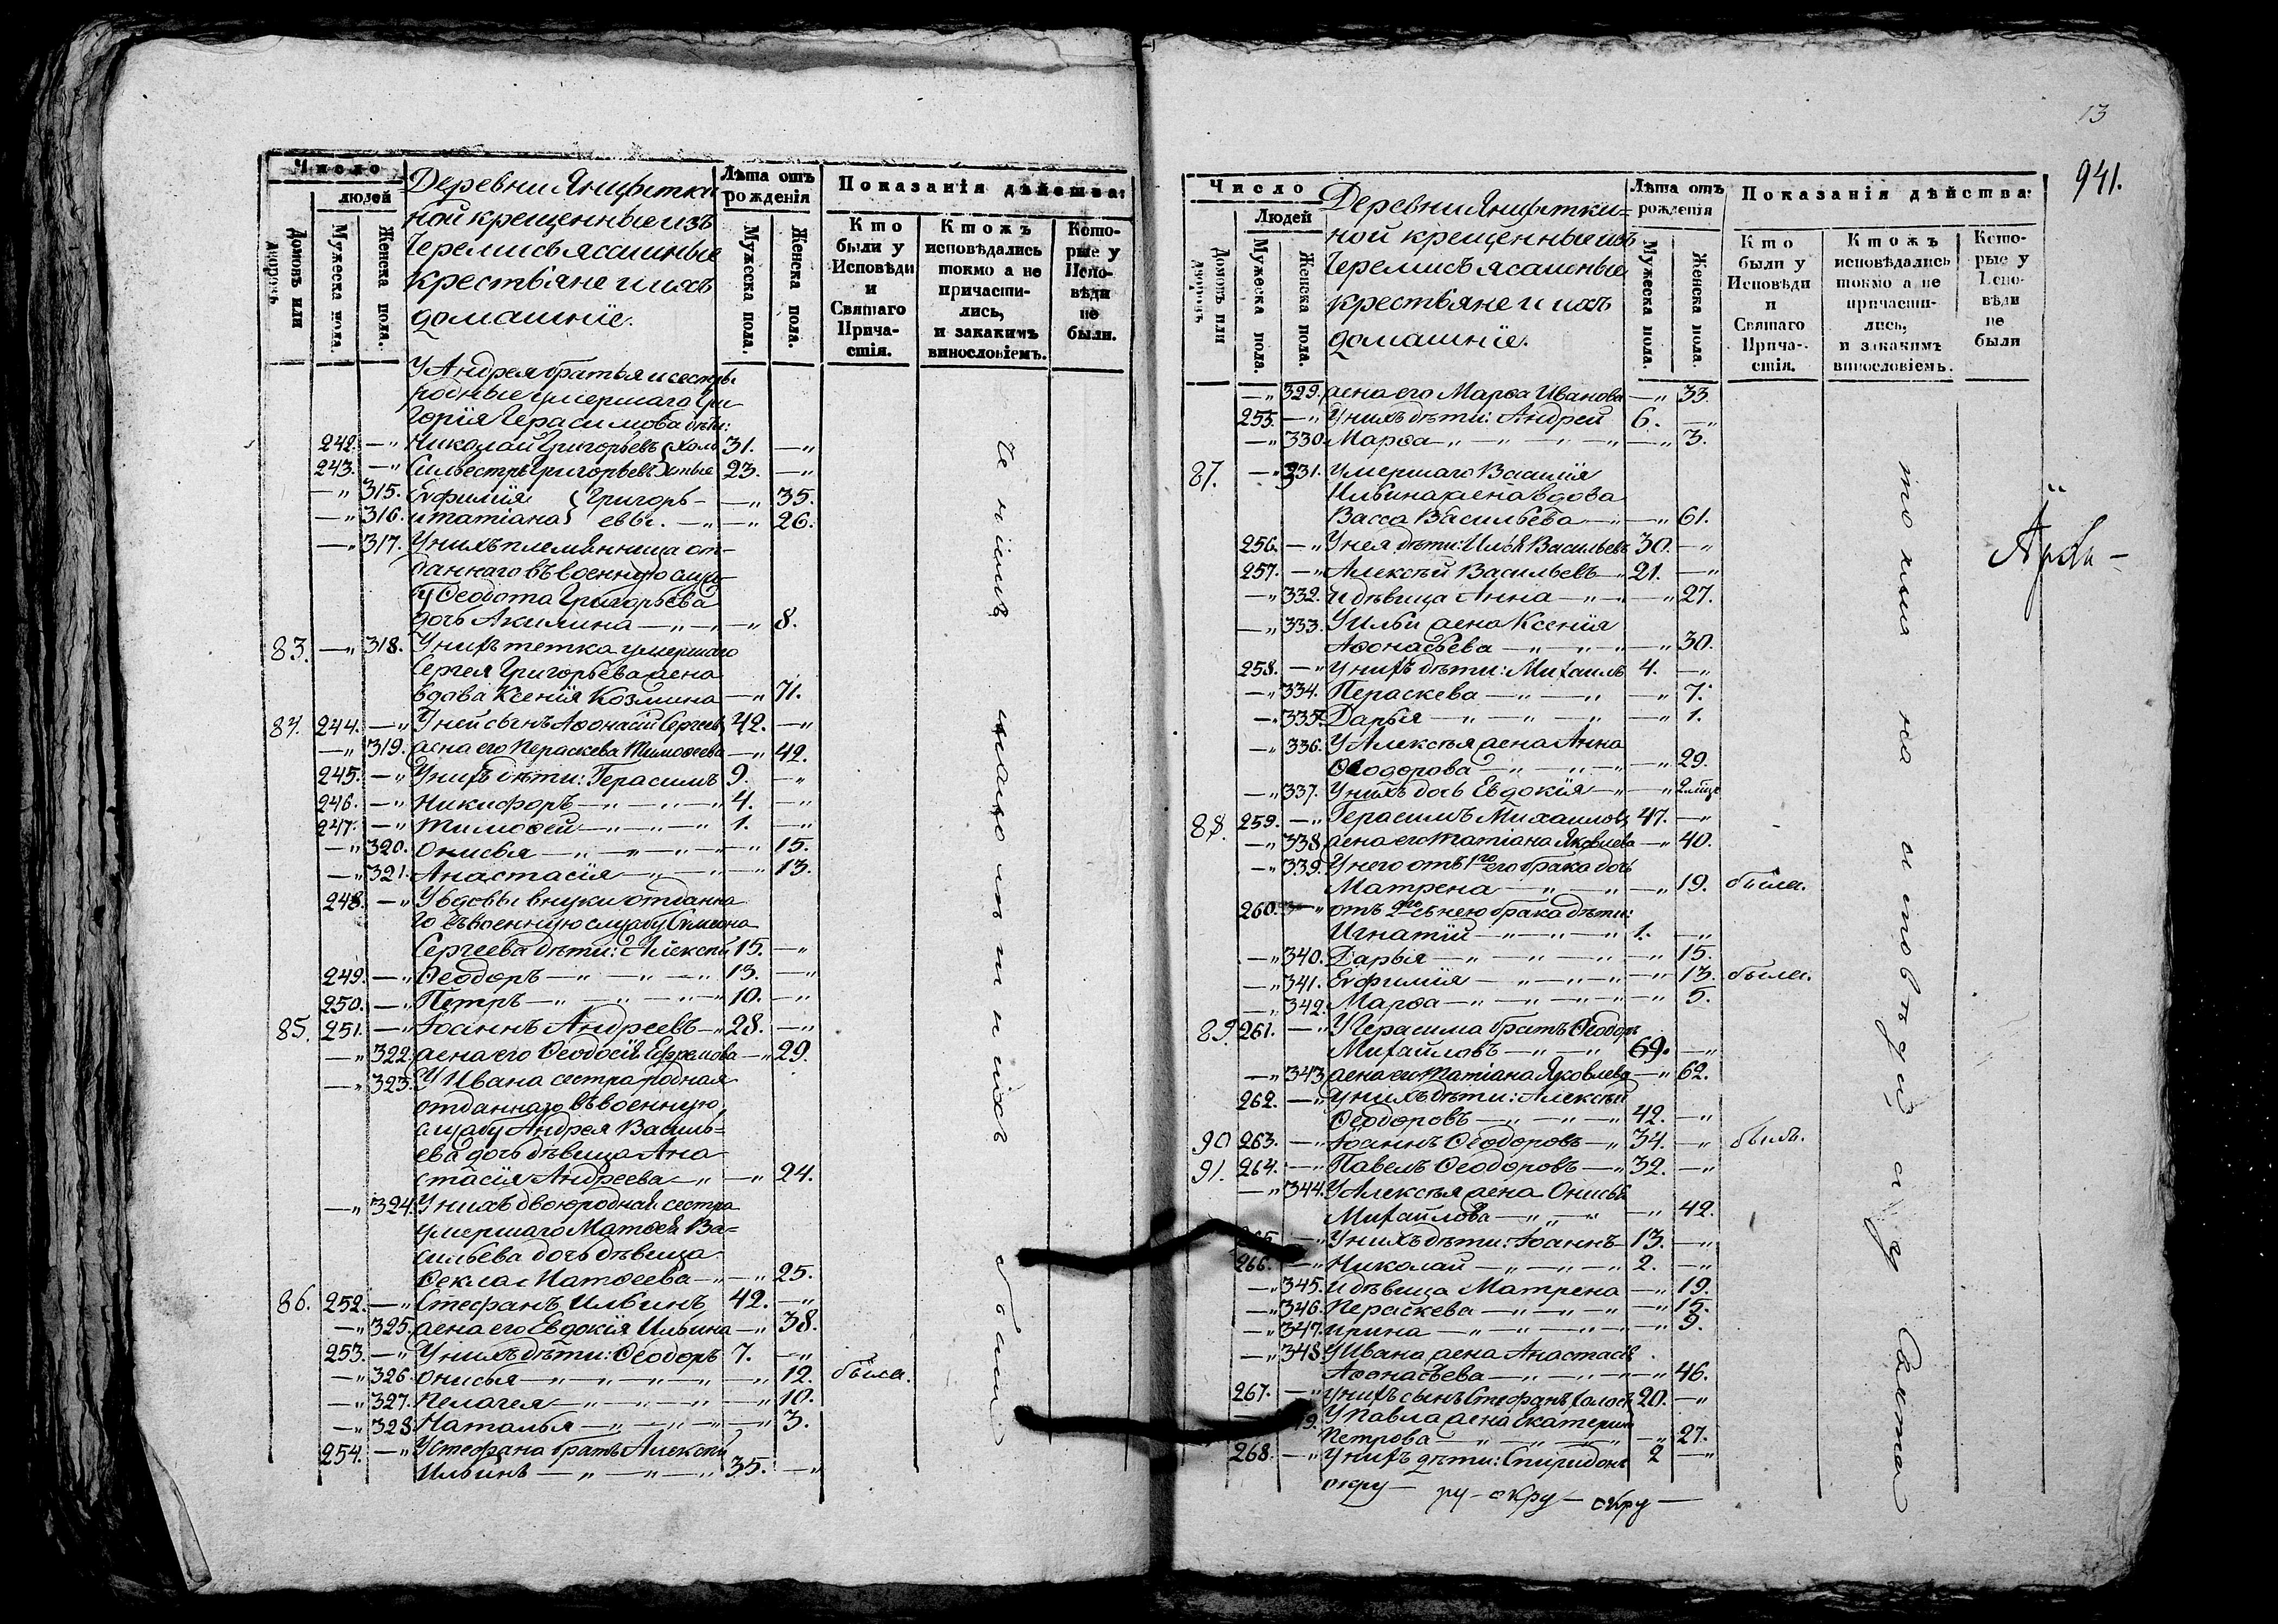 Число
людей
Домовъ или дворовъ
Мужеска пола.
Женска пола.
Деревни Янифитки
ной крещенные изъ
Черемисъ ясашные
крестьяне и ихъ
домашніе.
Лѣта отъ
рожденія
Мужеска пола.
Женска пола.
Показанія дѣйства:
Кто
были у
Исповѣди
и
Святаго
Прича-
стія.
Ктожъ
исповѣдались
токмо а не
причасти-
лись,
и закакимъ
винословіемъ.
Кото-
рые у
Испо-
вѣди
не
были.
У Андрея братья и сестры
родные умершаго Гри
горія Герасимова дѣти:
242. —„ Николай Григорьевъ 31. —„
243. —„ Сильвестръ Григорьевъ 23. —„
—„ 315. Евфимія } Григорь- —„ 35.
—„ 316. и татіана } евы. —„ —„ 26.
—„ 317. У нихъ племянница от-
даннаго въ военную служ-
бу Ѳеодота Григорьева
дочь Акилина —„— —„ 8.
83. —„ 318. У нихъ тетка умершаго
Сергея Григорьева жена
вдова Ксенія Козмина —„ 71.
84. 244. —„ У ней сынъ Аѳонасій Сергеев 42. —„
—„ 319. жена его Пераскева Тимоѳеева —„ 42.
245. —„ У нихъ дѣти: Герасимъ 9. —„
246. —„ Никифоръ —„ —„ —„ 4. —„
247. —„ Тимоѳей —„ —„ —„ 1. —„
—„ 320. Онисья —„ —„ —„ —„ 15.
—„ 321. Анастасія —„ —„ —„ 13.
248. —„ У вдовы внуки отданна
го въ военную службу Симеона
Сергеева дѣти: Алексѣй 15. —„
249. —„ Ѳеодоръ —„ —„ —„ 13. —„
250. —„ Петръ —„ —„ —„ 10. —„
85. 251. —„ Іоаннъ Андреевъ —„ 28. —„
—„ 322. жена его Ѳеодосія Ефремова —„ 29.
—„ 323. У Ивана сестра родная
отданнаго въ военную
службу Андрея Василь=
ева дочь дѣвица Ана
стасія Андреева —„ —„ 24.
—„ 324. У нихъ двоюродная сестра
умершаго Матѳея Ва=
сильева дочь дѣвица
Ѳекла Матѳеева —„ —„ 25.
86. 252. —„ Стефанъ Ильинъ 42. —„
—„ 325. жена его Евдокія Ильина —„ 38.
253. —„ У нихъ дѣти: Ѳеодоръ 7. —„
—„ 326. Онисья —„ —„ —„ —„ 12. была.
—„ 327. Пелагея —„ —„ —„ —„ 10.
—„ 328. Наталья —„ —„ —„ —„ 3.
254. —„ У Стефана братъ Алексѣй
Ильинъ —„ —„ —„ 35. —„
13
941.
Число
Людей
Домовъ или дворовъ
Мужеска пола.
Женска пола.
Деревни Янифитки=
ной крещенные изъ
Черемисъ ясашные
крестьяне и ихъ
домашніе.
Лѣта отъ
рожденія
Мужеска пола.
Женска пола.
Показанія дѣйства:
Кто
были у
Исповѣди
и
Святаго
Прича-
стія.
Ктожъ
исповѣдались
токмо а не
причасти-
лись,
и закакимъ
винословіемъ.
Кото-
рые у
Испо-
вѣди
не
были
—„ 329. жена его Марѳа Иванова —„ 33.
255. —„ У нихъ дѣти: Андрей 6. —„
—„ 330. Марѳа —„ —„ —„ —„ —„ 3.
87. —„ 331. Умершаго Василія
Ильина жена вдова
Васса Васильева —„ —„ 61.
256. —„ У нея дѣти: Илья Васильевъ 30. —„
257. —„ Алексѣй Васильевъ —„ 21. —„
—„ 332. и дѣвица Анна —„ —„ —„ 27.
—„ 333. У Ильи жена Ксенія
Аѳонасьева —„ —„ —„ —„ 30.
258. —„ У нихъ дѣти: Михаилъ 4. —„
—„ 334. Пераскева —„ —„ —„ 7.
—„ 335. Дарья —„ —„ —„ —„ 1.
—„ 336. У Алексѣя жена Анна
Ѳеодорова —„ —„ —„ 29.
—„ 337. У нихъ дочь Евдокія —„ —„
88. 259. —„ Герасимъ Михаиловъ 47. —„
—„ 338. жена его татіана Яковлева —„ 40.
—„ 339. У него отъ 1го его брака дочь
Матрена —„ —„ —„ 19. была.
260. —„ отъ 2го съ нею брака дѣти:
Игнатій —„ —„ —„ 1. —„
—„ 340. Дарья —„ —„ —„ —„ —„ 15.
—„ 341. Евфимія —„ —„ —„ —„ 13. была.
—„ 342. Марѳа —„ —„ —„ —„ —„ 5.
89. 261. —„ У Герасима братъ Ѳеодоръ
Михайловъ —„ —„ 69. —„
—„ 343. жена его татіана Яковлева —„ 62.
262. —„ У нихъ дѣти: Алексѣй
Ѳеодоровъ —„ —„ —„ 42. —„
90 263. —„ Іоаннъ Ѳеодоровъ —„ 34. —„ былъ.
91. 264. —„ Павелъ Ѳеодоровъ —„ 32. —„
—„ 344. У Алексѣя жена Онисья
Михайлова —„ —„ —„ 42.
—„ У нихъ дѣти: Іоаннъ 13. —„
266. —„ Николай —„ —„ —„ 2. —„
—„ 345. и дѣвица Матрена —„ 19.
—„ 346. Пераскева —„ —„ —„ —„ 15.
—„ 347. ирина —„ —„ —„ —„ —„ 9.
—„ 348. У Ивана жена Анастасія
Аѳонасьева —„ —„ —„ 46.
267. —„ У нихъ сынъ Стефанъ холостъ 20. —„
У Павла жена Екатерина
Петрова —„ —„ —„ —„ 27.
268. —„ У нихъ дѣти: Спиридонъ 2 —„